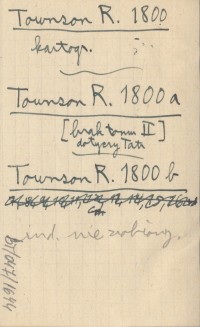 Townson R. 1800
kartogr.
Townson R. 1800 a
[brak tomu II]
dotyczy Tatr
Townson R. 1800 b
ind. nie zrobiony.